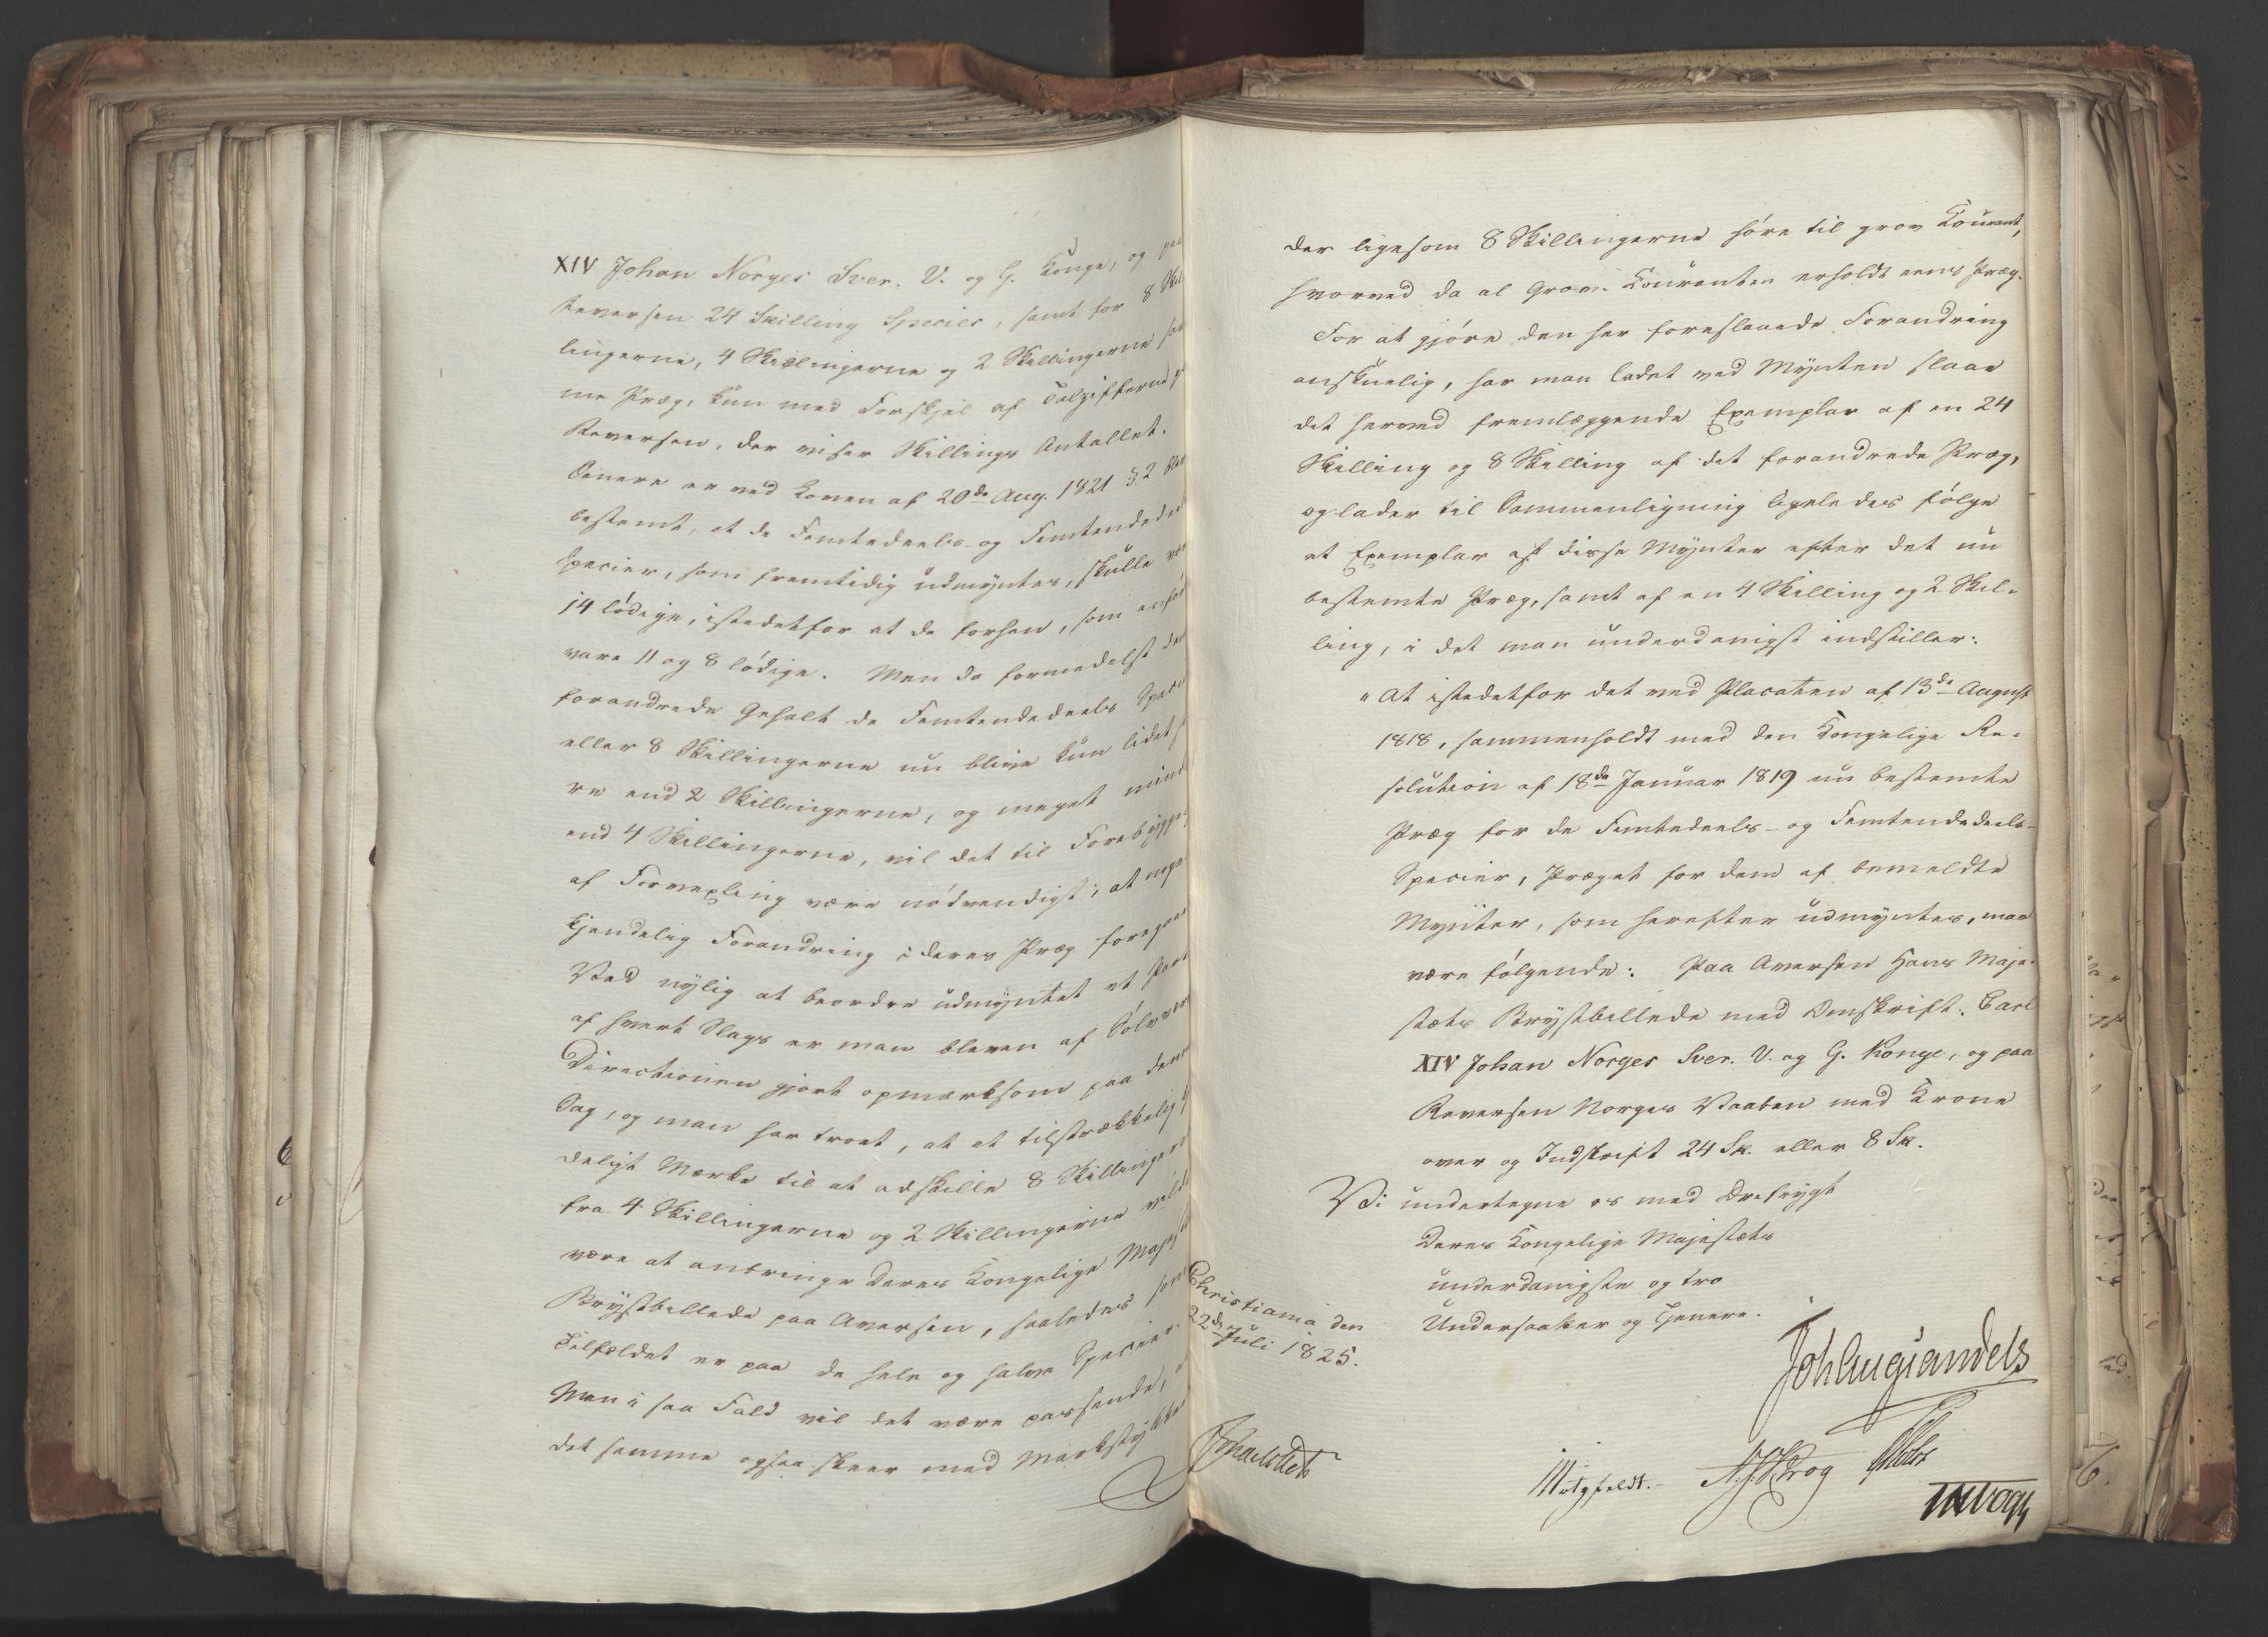 XIV Johan Norges Sver. V. og G. Konge, og paa
Reversen 24 Skilling Species, samt for 8 Skil
lingerne, 4 Skillingerne og 2 Skillingerne sam
me Præg, kun med Forskjel af Talzifferne p
Reversen, der viser Skillings Antallet.
Senere er ved Loven af 20de Aug. 1821 §. 2
bestemt, at de Femtedeels- og Femtendedeel
Specier, som fremtidig udmyntes, skulle vær
14 lødige, istedetfor at de forhen, som anfør
vare 11 og 8 lødige. Men da formedelst den
forandrede Gehalt de Femtendedeels Speci
eller 8 Skillingerne nu blive kun lidet
re end 2 Skillingerne, og meget mind
end 4 Skillingerne, vil det til Forebygge
af Forvexling være nödvendigt, at noge
kjendelig Forandring i deres Præg foregaa
Ved nylig at beordre udmyntet et Part
af hvert Slags er man bleven af Sølvv
Directionen gjort opmærksom paa denn
Sag, og man har troet, at et tilstrækkelig
deligt Mærke til at adskille 8 Skillingern
fra 4 Skillingerne og 2 Skillingerne vilde
være at anbringe Deres Kongelige Majest
Brystbillede paa Aversen, saaledes som
Tilfældet er paa de hele og halve Specier.
Men i saa Fald vil det være passende,
det samme ogsaa skeer med Markstykke
der ligesom 8 Skillingerne høre til grov Courant,
hvorved da al Grov-Couranten erholdt eens Præg.
For at gjöre den her foreslaaede Forandring
anskuelig, har man ladet ved Mynten slaae
det herved fremlæggende Exemplar af en 24
Skilling og 8 Skilling af det forandrede Præg,
og lader til Sammenligning ligeledes følge
et Exemplar af disse Mynter efter det nu
bestemte Præg, samt af en 4 Skilling og 2 Skil-
ling, i det man underdanigst indstiller:
"At istedetfor det ved Placaten af 13de August
1818, sammenholdt med den Kongelige Re-
solution af 18de Januar 1819 nu bestemte
Præg for de Femtedeels- og Femtendedeels-
Specier, Præget for dem af bemeldte
Mynter, som herefter udmyntes, maa
være følgende: Paa Aversen Hans Maje-
stæts Brystbillede med Omskrift: Carl
XIV Johan Norges Sver. V. og G. Konge, og paa
Reversen Norges Vaaben med Krone
over og Indskrift 24 Sk. eller 8 Sk.
Vi undertegne os med Ærefrygt
Deres Kongelige Majestæts
underdanigste og tro
Undersaatter og Tjenere.
Christiania den
22de Juli 1825.
Joh Aug Sandels
Motzfeldt. Krog